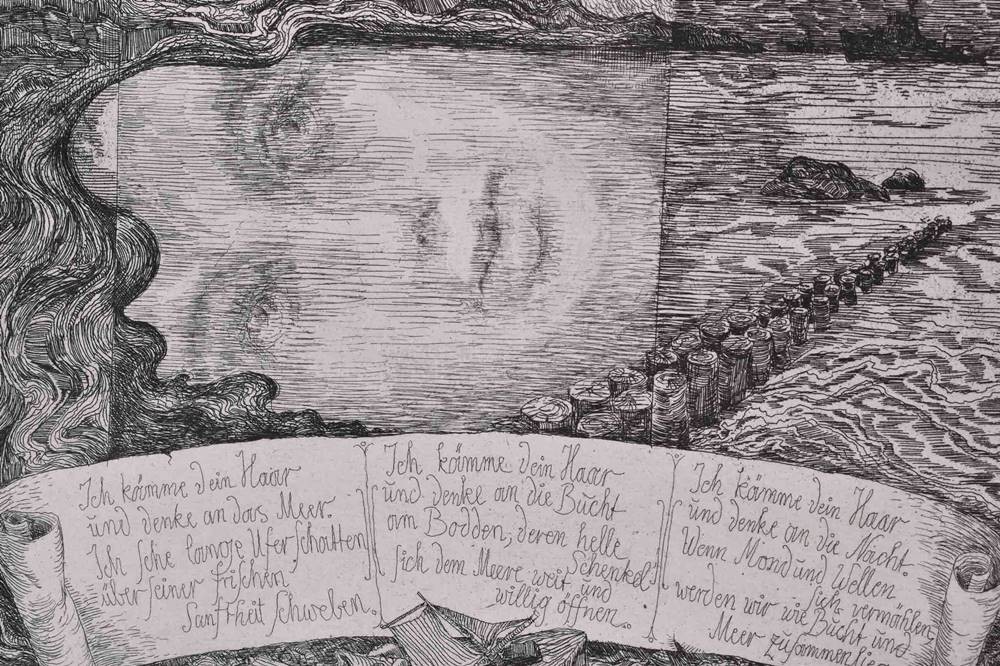 Ich kämme dein Haar
und denke an das Meer.
Ich sehe lange Uferschatten
über seiner frischen
Sanftheit schweben.
Ich kämme dein Haar
und denke an die Bucht
am Bodden, deren helle
Schenkel
sich dem Meere weit und
willig öffnen.
Ich kämme dein Haar
und denke an die Nacht.
Wenn Mond und Wellen
sich vermählen,
werden wir wie Bucht und
Meer